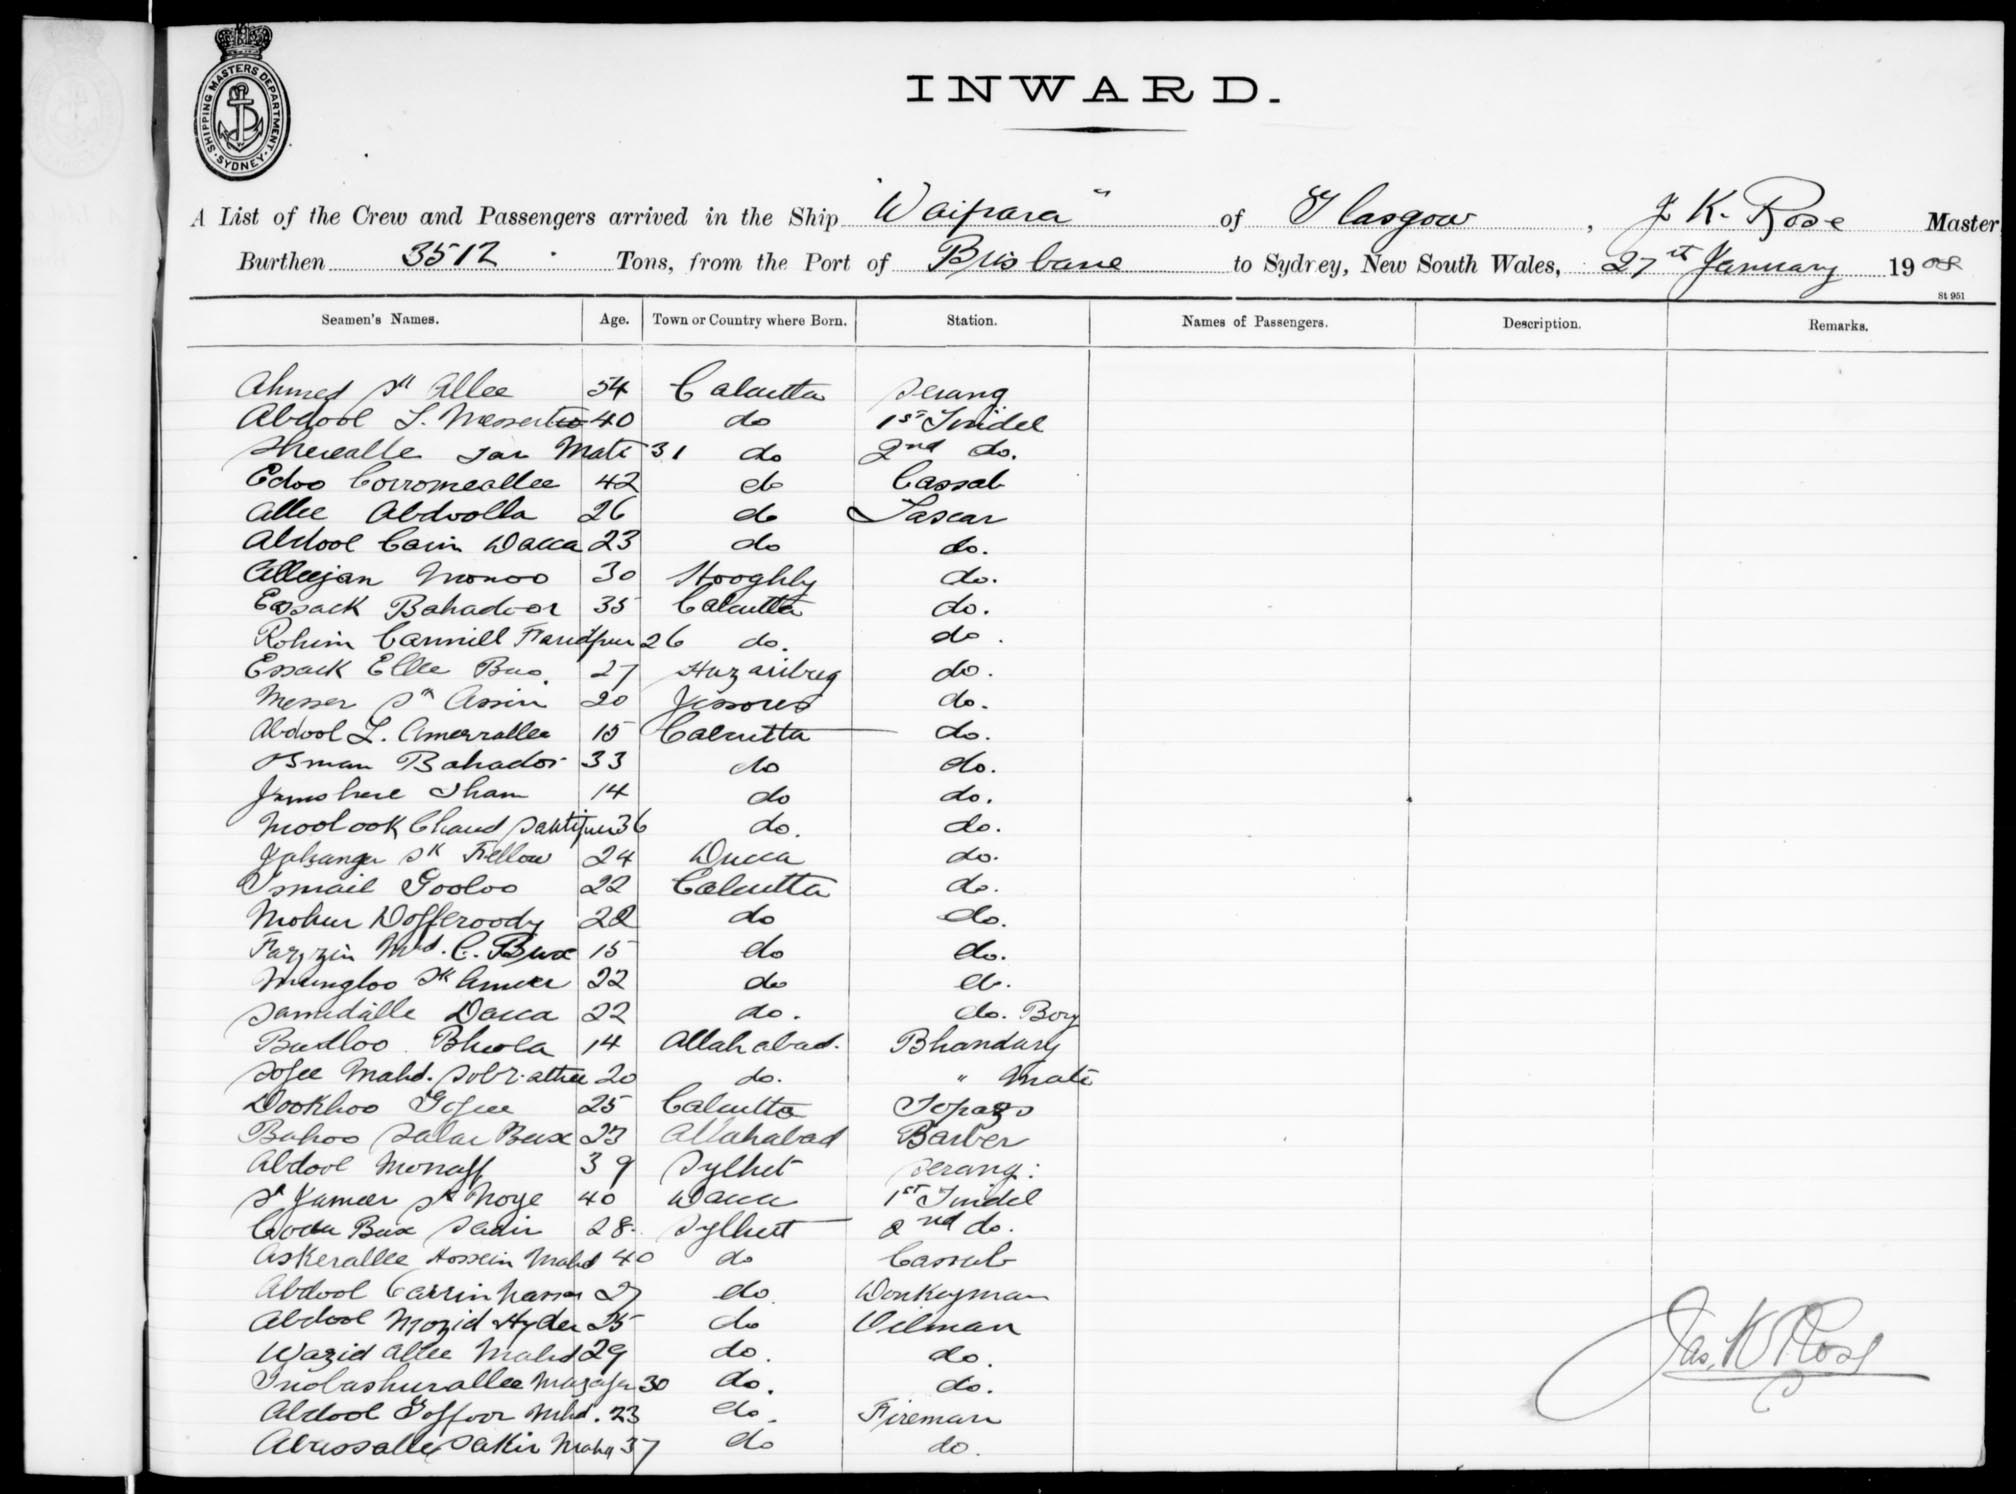 SHIPPING MASTERS DEPARTMENT
SYDNEY
INWARD.
A List of the Crew and Passengers arrived in the Ship "Waipara" of Glasgow, J K. Rose Master
Burthen 3512 Tons, from the Port of Brisbane to Sydney, New South Wales, 27st January 1908
St 951
Seamen's Names. Age. Town or Country where Born. Station. Names of Passengers. Description. Remarks.
Ahmed Sk Allee 54 Calcutta Serang
Abdool L. 40 do 1st Tindel
Mati 31 do 2nd do.
Edoo Corromeallee 42 do Cassab
Allee Abdoolla 26 do Lascar
Abdool Carim Dacca 23 do do.
Alleejan Monoo 30 Hooghly do.
Essack Bahadoor 35 Calcutta do.
Rohim Faridpur 26 do. do.
Essack Ellee Bux. 27 Hazaribug do.
Messer Sk Assim 20 Jessores do.
Abdool L. Amerrallee 15 Calcutta do.
Osman Bahador 33 do do.
Jumshere 14 do do.
Moolook Chand 36 do. do.
Sk Fellow 24 Ducca do.
Ismail Gooloo 22 Calcutta do.
Dofferoody 22 do do.
Md. C. Bux 15 do do.
Mungloo Sk Ameer 22 do do.
Samedalle Dacca 22 do. do. Boy
Budloo Bhola 14 Allahabad. Bhandary
Mahd. 20 do. " Mate
Dookhoo 25 Calcutta Topazs
Bahoo Salar Bux 23 Allahabad Barber
Abdool Monaff 39 Sylhet Serang:
Sk Jameer Sk Noye 40 Dacca 1st Tindel
Bux 28. Sylhet 2nd do.
Askerallee Hossein Mahd 40 do Cassab
Abdool Carrim Nasser 27 do Donkeyman
Abdool Mozid Hyder 25 do Oilman
Wazid Allee Mahd 29 do. do.
30 do. do.
Abdool Goffoor Mhd. 23 do. Fireman
Sakir Mahd 37 do do.
Jas. K Rose